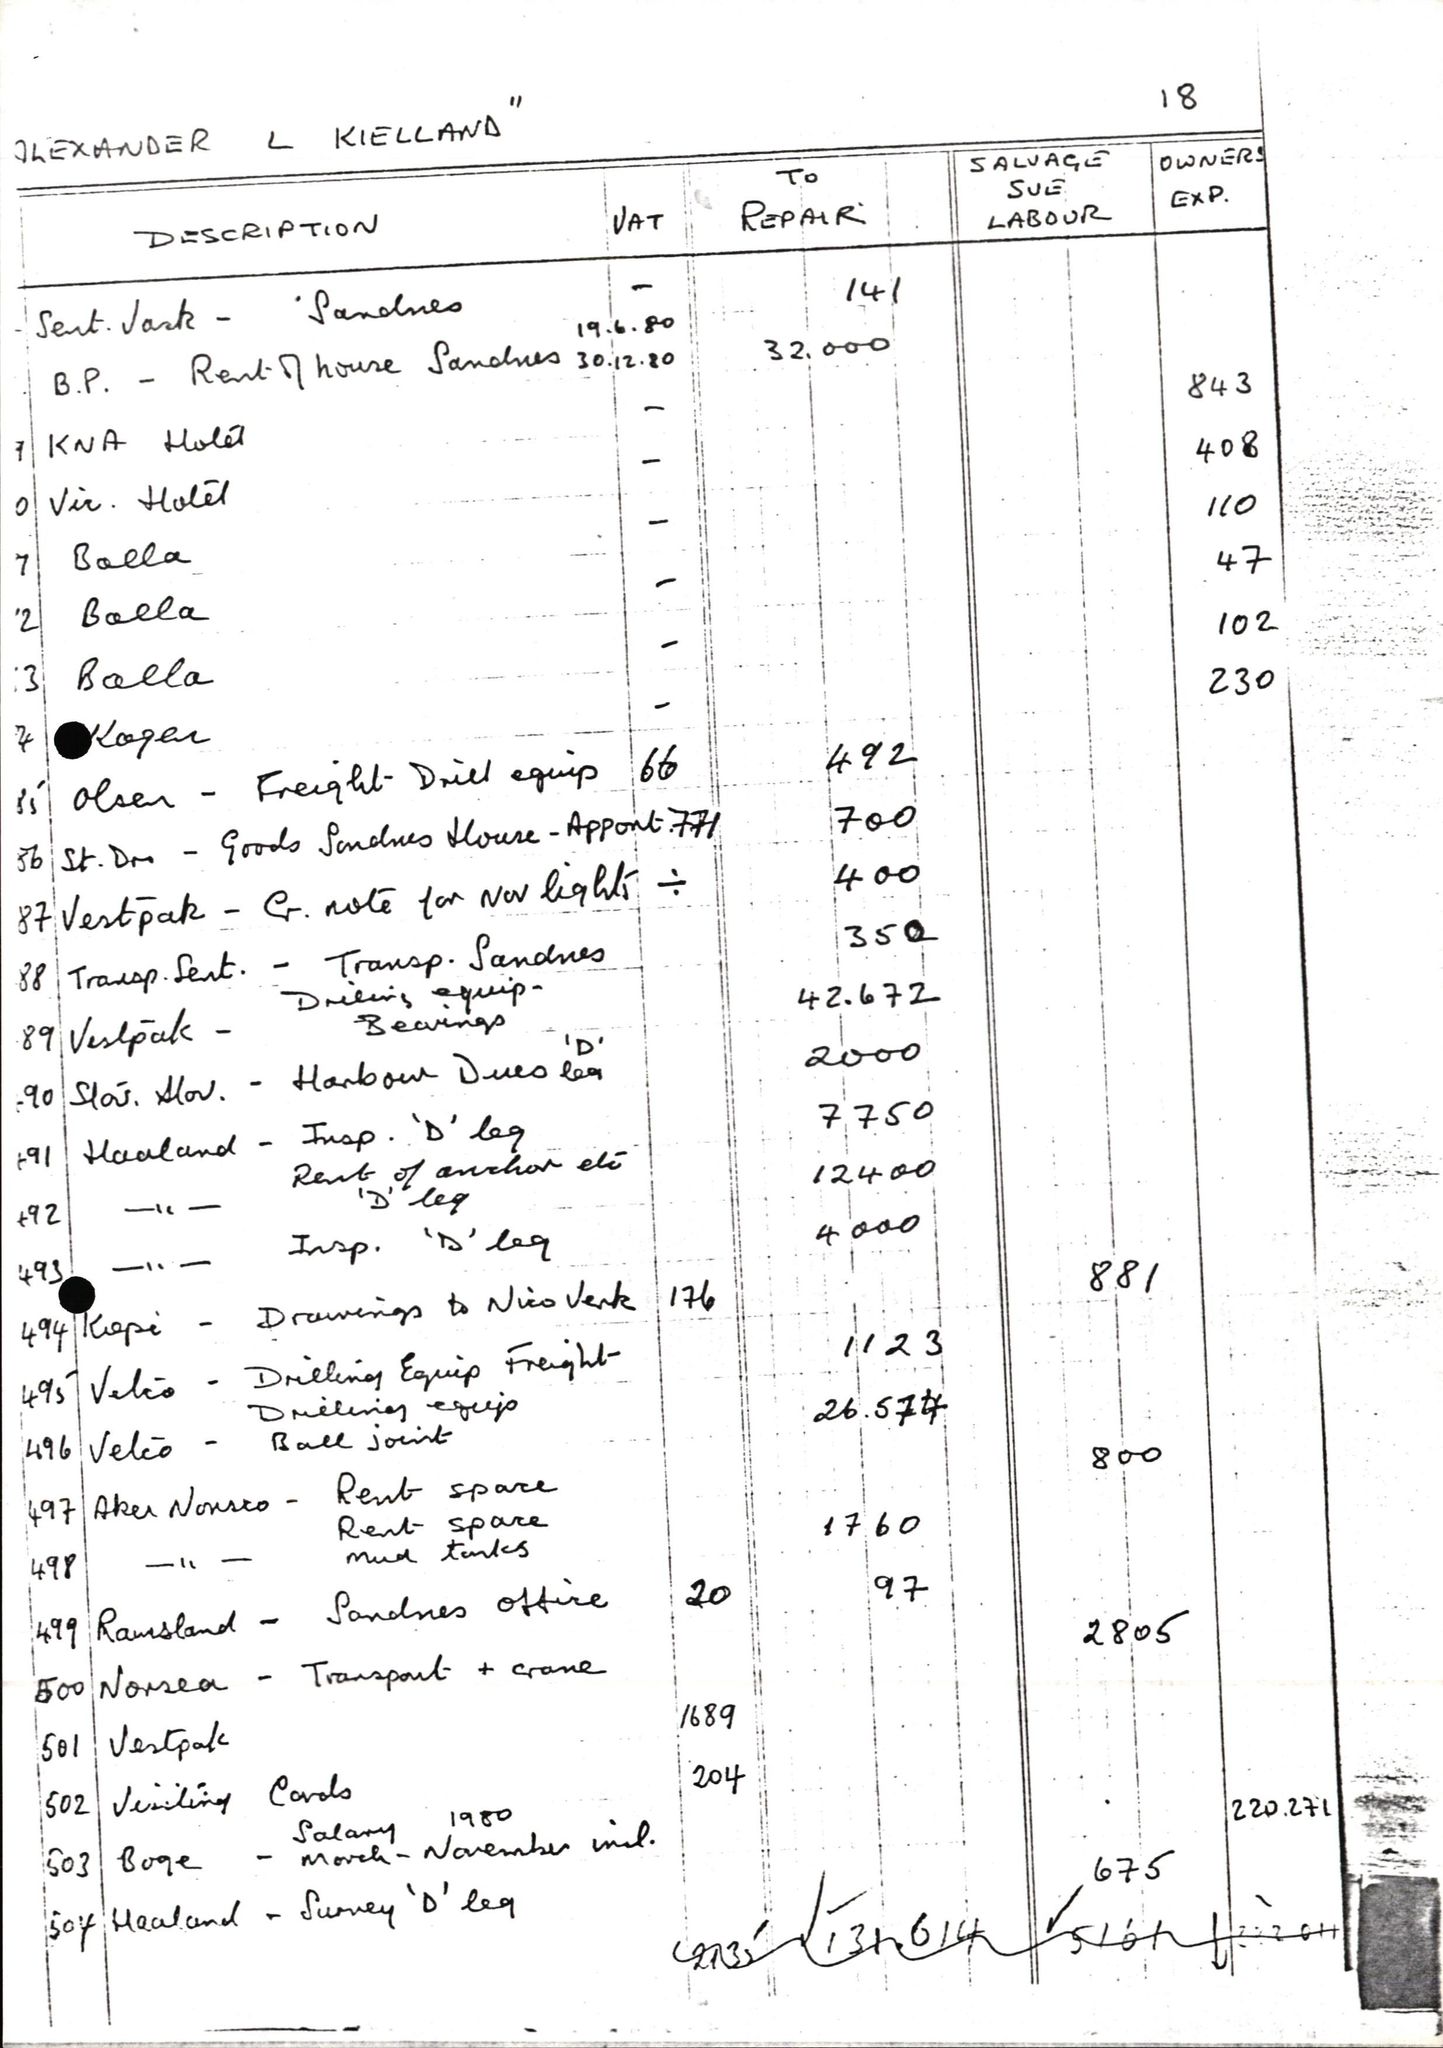 ALEXANDER L KIELLAND" 18
DESCRIPTION VAT TO REPAIR SALVAGE SUE LABOUR OWNERS EXP.
Sent. Vask - Sandnes - 141
B.P. - Rent of house Sandnes 19.6.80 30.12.80 32.000
7 KNA Hotel - 843
0 Vic. Hotel - 408
7 Balla - 110
2 Balla - 47
3 Balla - 102
4 - 230
85 Olsen - Freight Drill equip 66 492
86 St. Dm - Goods Sandnes House - Apport. 771 700
87 Vestpak - Cr. note for Nov lights ÷ 400
88 Transp. Sent. - Transp. Sandnes 350
89 Vestpak - Drilling equip - Bearings 42.672
90 Stav. Hav. - Harbour Dues 'D' leg 2000
491 Haaland - Insp. 'D' leg 7750
492 —"— Rent of anchor etc 'D' leg 12400
493 —"— Insp. 'D' leg 4000
494 Kopi - Drawings to Nico Verk 176 881
495 Velco - Drilling Equip Freight 1123
496 Velco - Drilling equip Ball joint 26.574
497 Aker Norsco - Rent space 800
498 —"— Rent space mud tanks 1760
499 Ramsland - Sandnes office 20 97
500 Norsea - Transport + crane 2805
501 Vestpak 1689
502 Visiting Cards 204
503 Boge - Salary 1980 March - November incl. 220.271
504 Haaland - Survey 'D' leg 675
131.614 5161